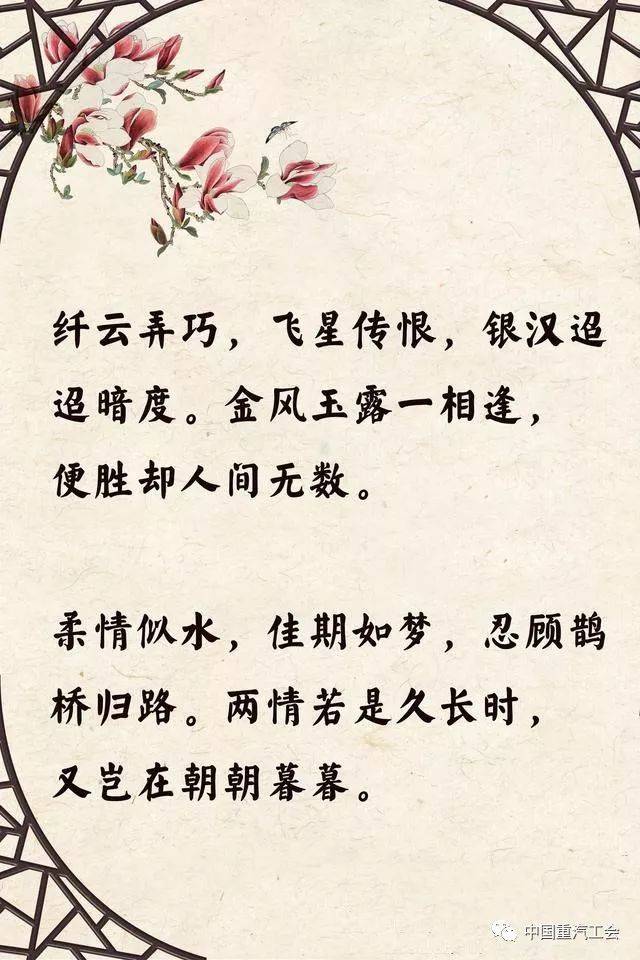 纤云弄巧，飞星传恨，银汉迢
迢暗度。金风玉露一相逢，
便胜却人间无数。
柔情似水，佳期如梦，忍顾鹊
桥归路。两情若是久长时，
又岂在朝朝暮暮。
中国重汽工会